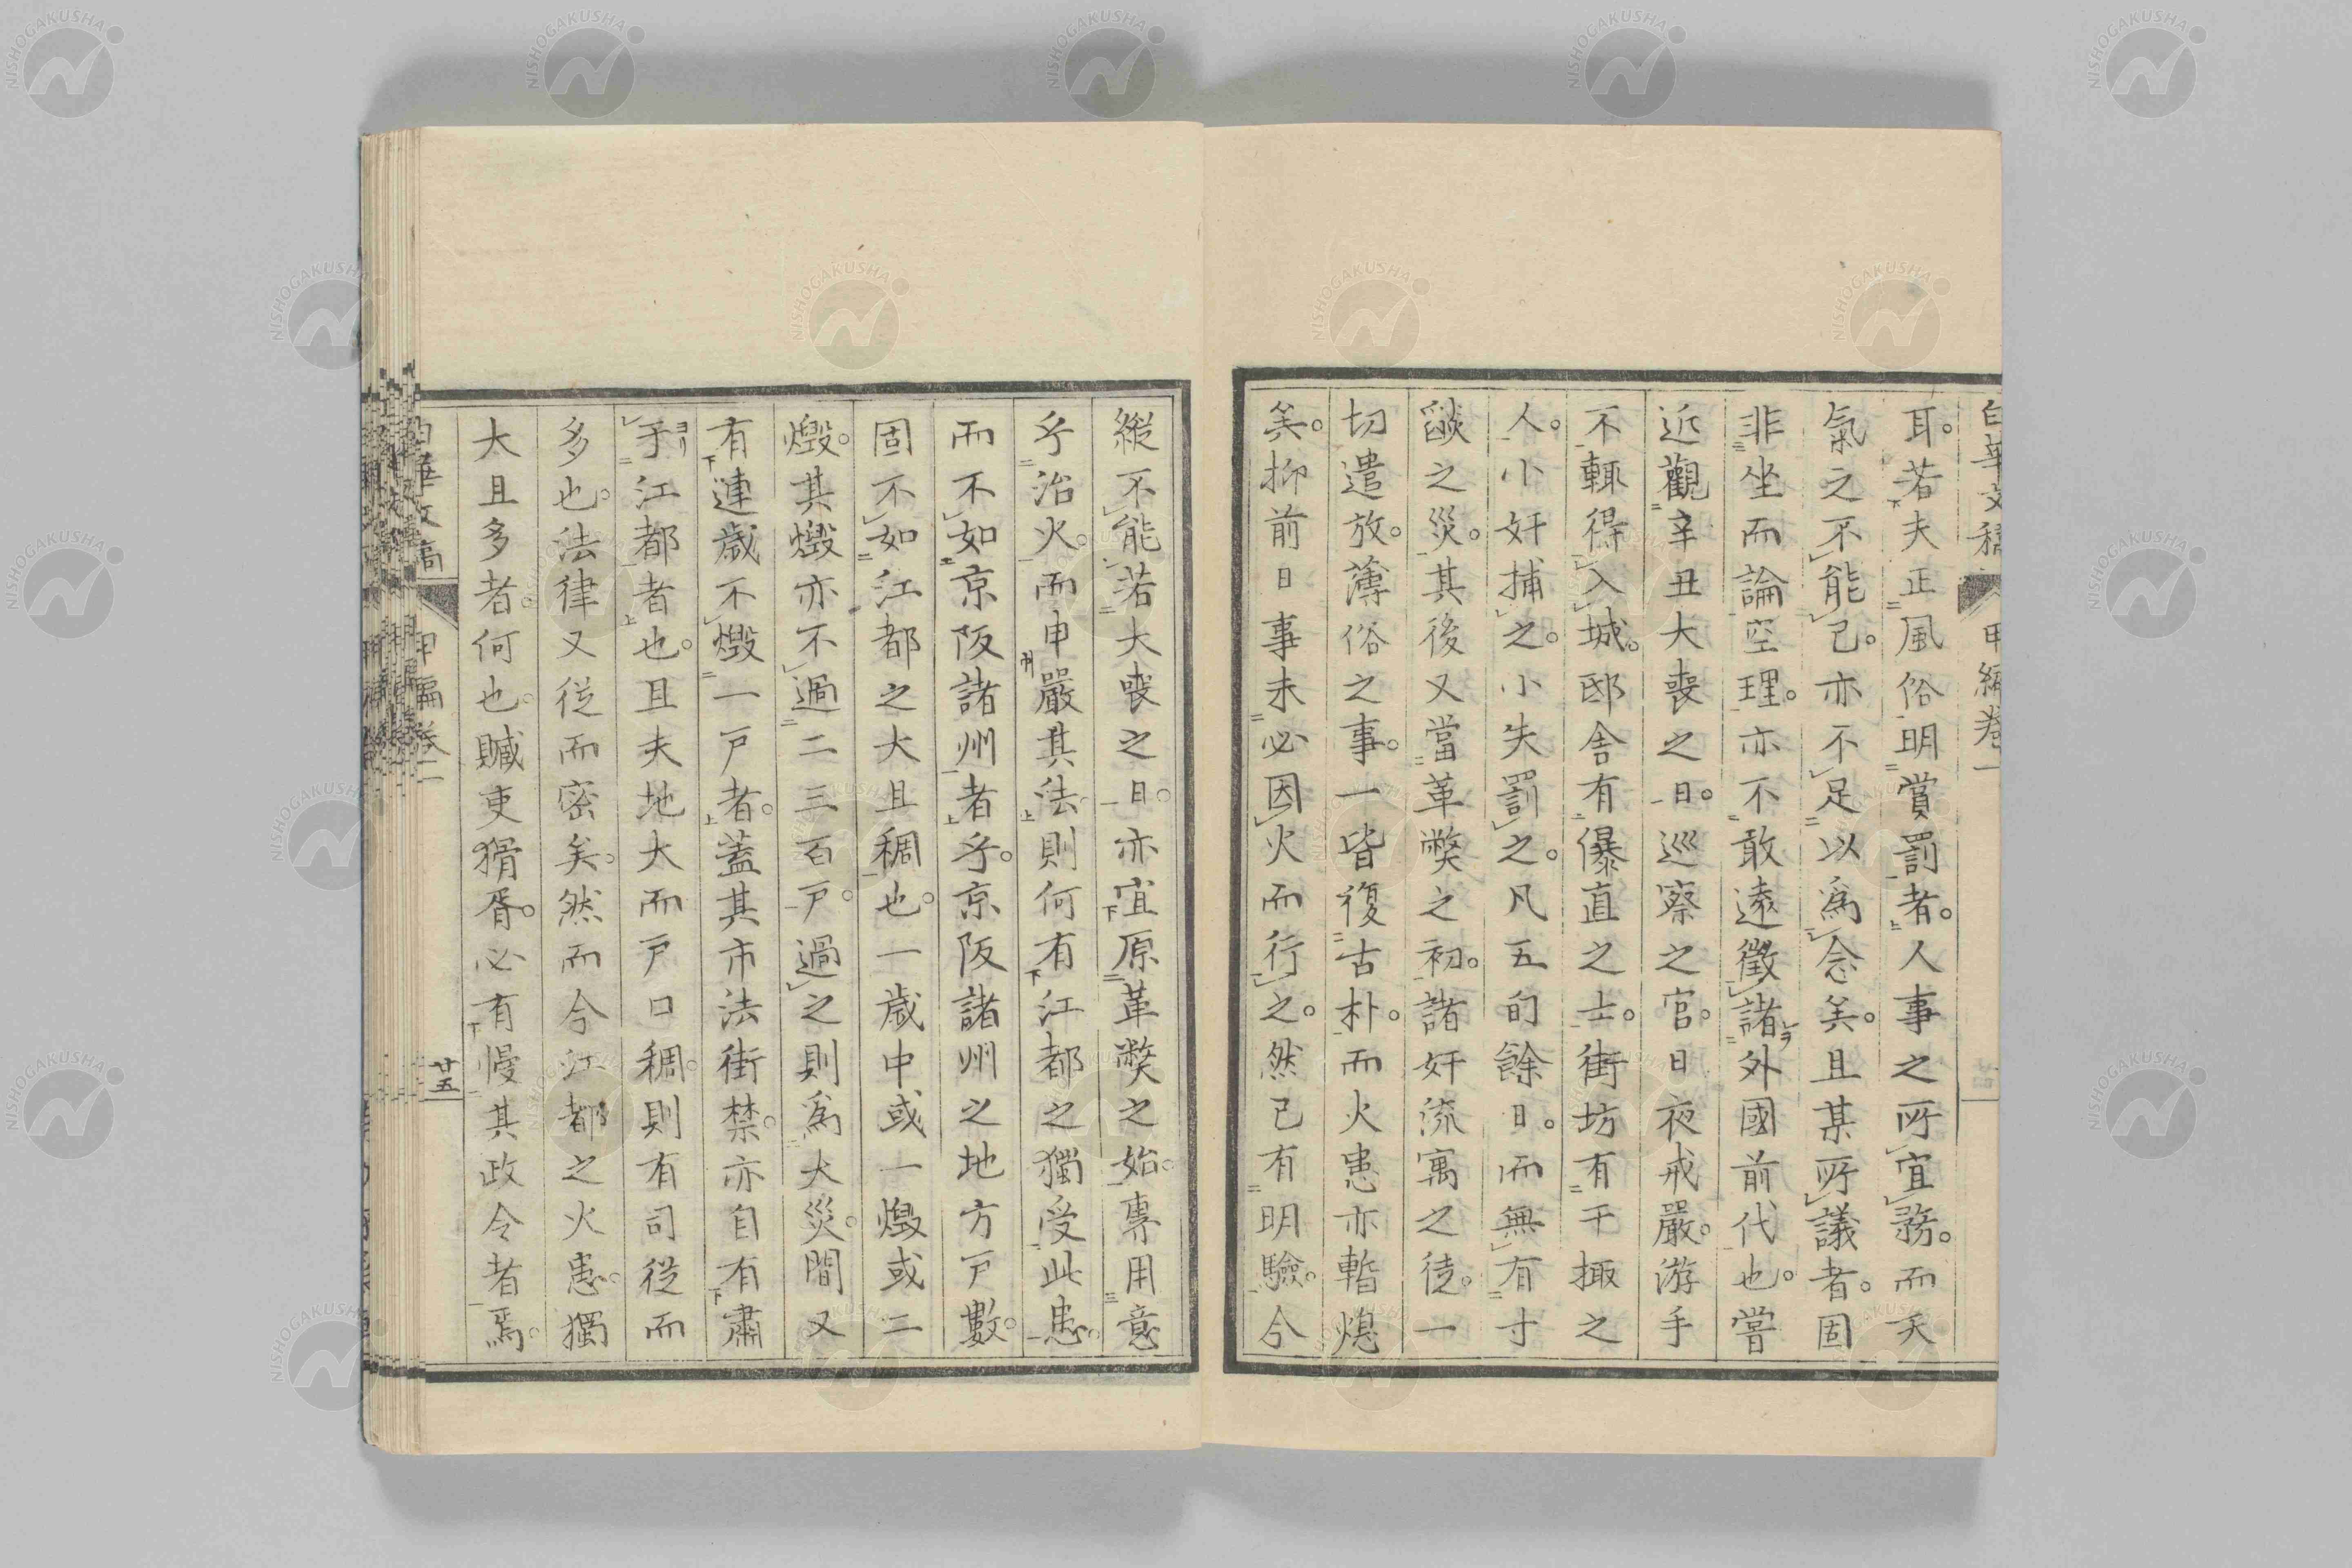 耳。若夫正風俗明賞罰者。人事之所宜務。而天
氣之不能已。亦不足以爲念矣。且某所議者。固
非坐而論空理。亦不敢遠徵諸外國前代也。嘗
近觀辛丑大喪之日。巡察之官。日夜戒嚴。游手
不輙得入城。邸舍有儤直之士。街坊有干掫之
人。小奸捕之。小失罰之。凡五旬餘日。而無有寸
燄之災。其後又當革弊之初。諸奸流寓之徒。一
切遣放。薄俗之事。一皆復古朴。而火患亦暫熄
矣。抑前日事未必因火而行之。然已有明驗。今
縱不能若大喪之日。亦宜原革弊之始。專用意
乎治火。而申嚴其法。則何有江都之獨受此患。
而不如京阪諸州者乎。京阪諸州之地方戸數。
固不如江都之大且稠也。一歲中或一燬或二
燬。其燬亦不過二三百戸。過之則爲大災。間又
有連歲不燬一戸者。蓋其市法街禁。亦自有肅
于江都者也。且夫地大而戸口稠。則有司從而
多也。法律又從而密矣。然而今江都之火患。獨
大且多者。何也。贓吏猾胥。必有慢其政令者焉。
白華文稿 甲編卷一
甲編卷二
廿五
NISHOGAKUSHA